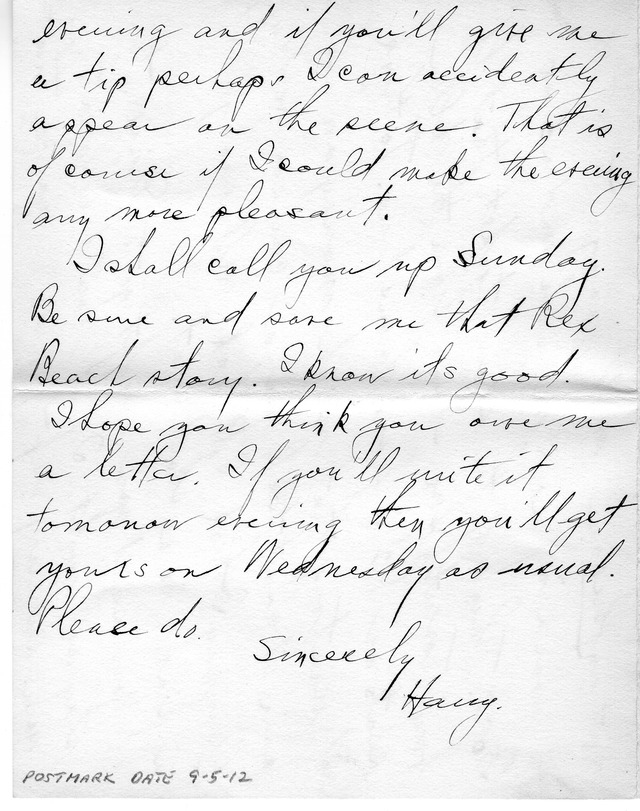 evening and if you'll give me
a tip perhaps I can accidently
appear on the scene. That is
of course if I could make the evening
any more pleasant.
I shall call you up Sunday.
Be sure and save me that Rex
Beach story. I know its good.
I hope you think you owe me
a letter. If you'll write it
tomorrow evening then you'll get
yours on Wednesday as usual.
Please do.
Sincerely
Harry.
POSTMARK DATE 9-5-12